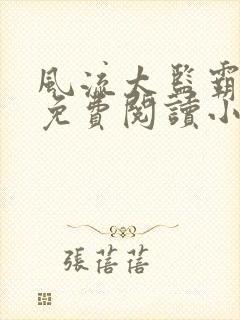 風流大監霸
免費閱讀小
張蓓蓓